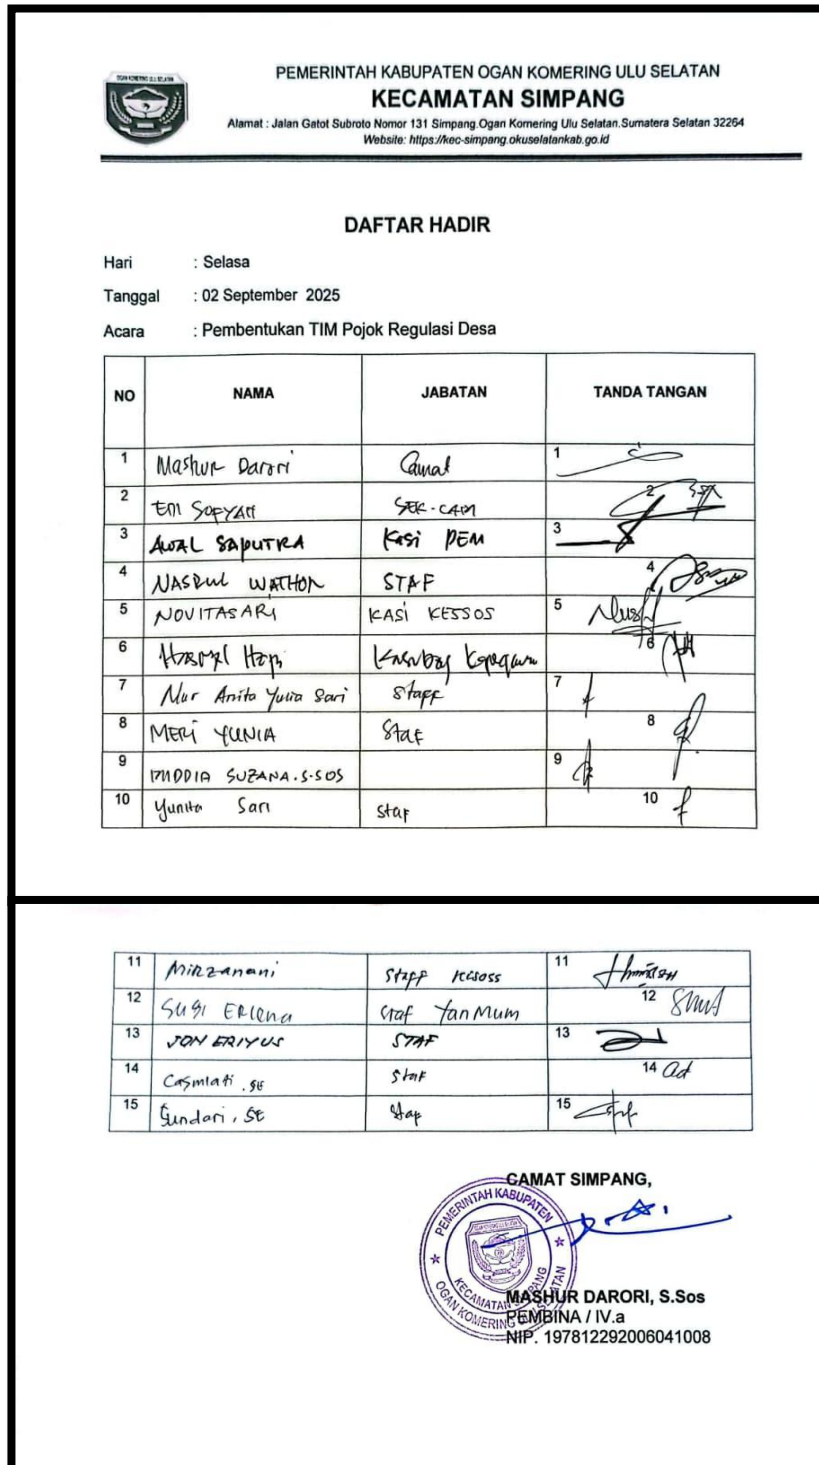 OGAN KOMERING ULU SELATAN
PEMERINTAH KABUPATEN OGAN KOMERING ULU SELATAN
KECAMATAN SIMPANG
Alamat : Jalan Gatot Subroto Nomor 131 Simpang.Ogan Komering Ulu Selatan.Sumatera Selatan 32264
Website: https://kec-simpang.okuselatankab.go.id
DAFTAR HADIR
Hari : Selasa
Tanggal : 02 September 2025
Acara : Pembentukan TIM Pojok Regulasi Desa
NO NAMA JABATAN TANDA TANGAN
1 Mashur Darori Camat 1
2 Eni SOPYAN SEK-CAM 2
3 AWAL SAPUTRA Kasi PEM 3
4 NASRUL WATHON STAF 4
5 NOVITASARI KASI KESSOS 5
6 Kasubag 6
7 Nur Anita Yulia Sari Staff 7
8 MERI YUNIA Staf 8
9 SUZANA.S.SOS 9
10 Yunita Sari Staf 10
11 Mirzanani Staff 11
12 SUGI ERlena Staf YanMum 12
13 JON ERIYUS STAF 13
14 Casmiati .SE Staf 14
15 Sundari, SE Staf 15
CAMAT SIMPANG,
PEMERINTAH KABUPATEN
KECAMATAN SIMPANG
OGAN KOMERING ULU SELATAN
MASHUR DARORI, S.Sos
PEMBINA / IV.a
NIP. 197812292006041008